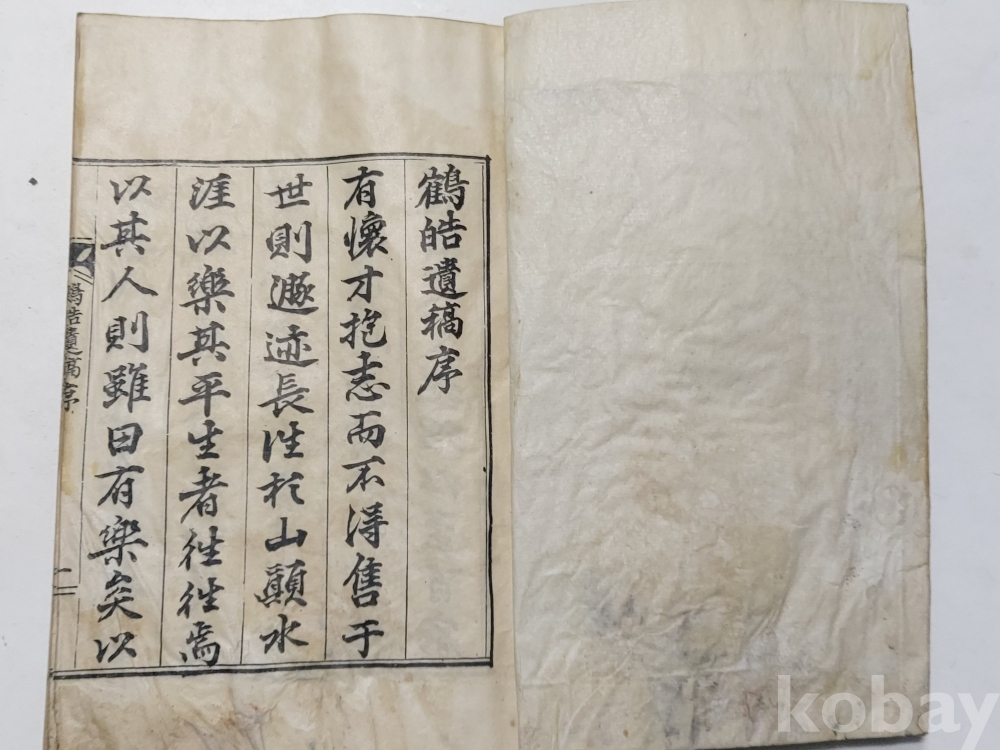 鶴皓遺稿序
有懷才抱志而不得售于
世則遯迹長往於山顚水
涯以樂其平生者往往焉
以其人則雖曰有樂矣以
鶴皓遺稿序
一
kobay